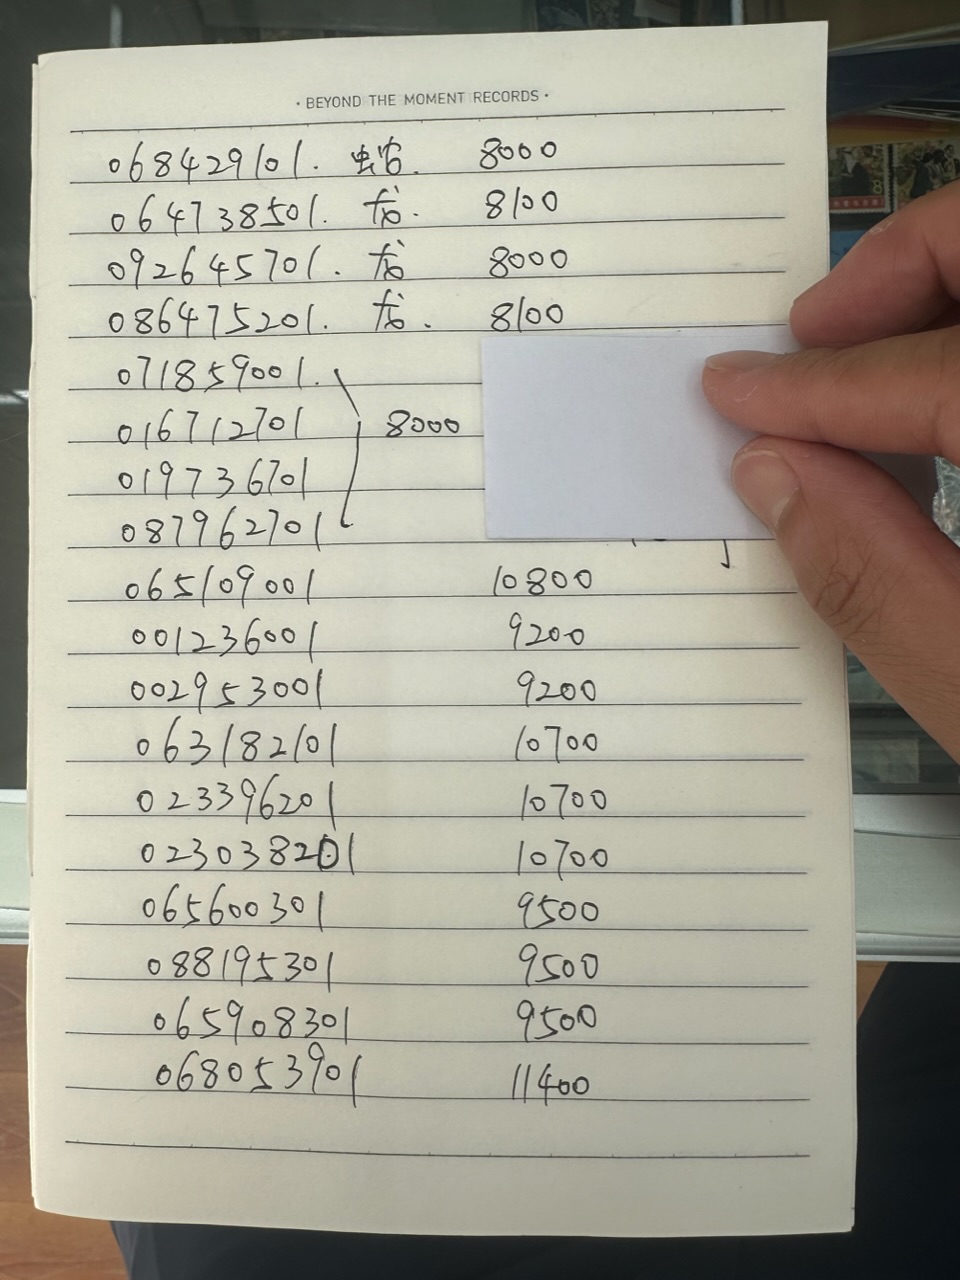 · BEYOND THE MOMENT RECORDS ·
068429101. 蛇. 8000
064738501. 龙. 8100
092645701. 龙 8000
086475201. 龙. 8100
071859001.
016712701 8000
019736701
087962701
065109001 10800
001236001 9200
002953001 9200
063182101 10700
023396201 10700
023038201 10700
065600301 9500
088195301 9500
065908301 9500
068053901 11400